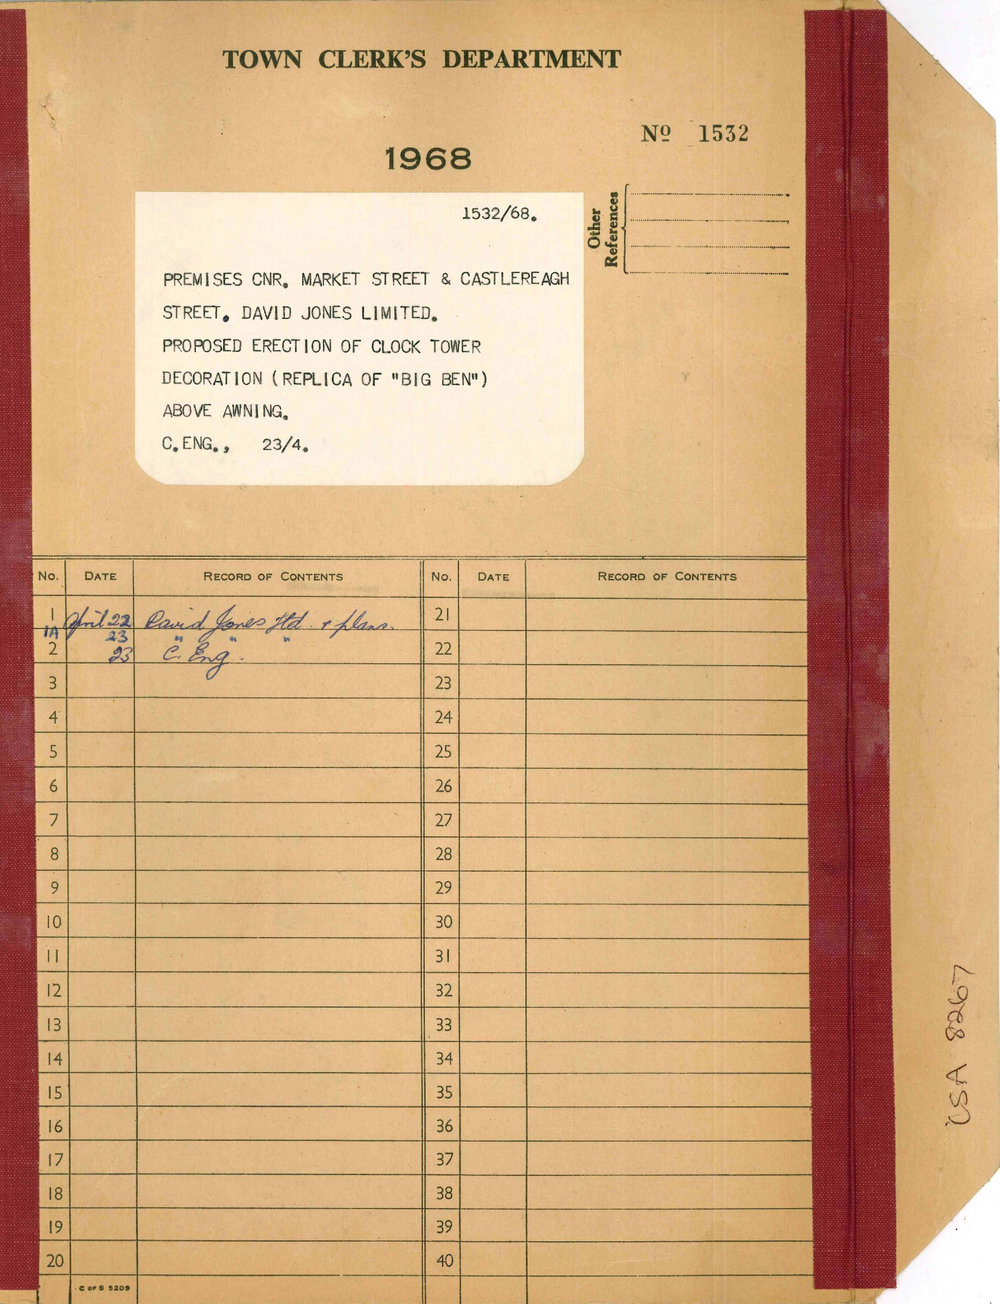 TOWN CLERK'S DEPARTMENT
Nº 1532
1968
Other References
1532/68.
PREMISES CNR. MARKET STREET & CASTLEREAGH
STREET. DAVID JONES LIMITED.
PROPOSED ERECTION OF CLOCK TOWER
DECORATION (REPLICA OF "BIG BEN")
ABOVE AWNING.
C.ENG., 23/4.
No. DATE RECORD OF CONTENTS No. DATE RECORD OF CONTENTS
1 April 22 David Jones Ltd. + plans. 21
1A 23 " " "
2 23 C. Eng. 22
3 23
4 24
5 25
6 26
7 27
8 28
9 29
10 30
11 31
12 32
13 33
14 34
15 35
16 36
17 37
18 38
19 39
20 40
C OF S 5209
CSA 8267